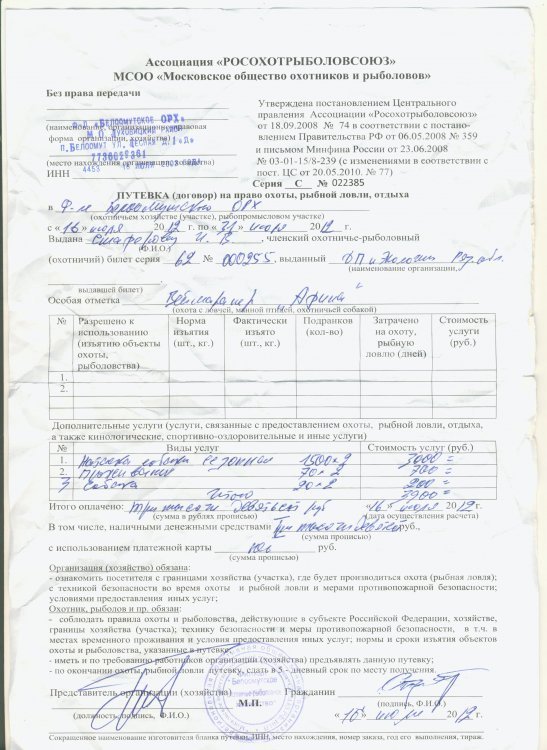 Ассоциация «РОСОХОТРЫБОЛОВСОЮЗ»
МСОО «Московское общество охотников и рыболовов»
Без права передачи
Утверждена постановлением Центрального
правления Ассоциации «Росохотрыболовсоюз»
от 18.09.2008 № 74 в соответствии с постано-
влением Правительства РФ от 06.05.2008 № 359
и письмом Минфина России от 23.06.2008
№ 03-01-15/8-239 (с изменениями в соответствии с
пост. ЦС от 20.05.2010. № 77)
"БЕЛООМУТСКОЕ ОРХ"
(наименование, организационно-правовая
форма организации, хозяйства)
п.БЕЛООМУТ УЛ.
(место нахождения организации, хозяйства)
ИНН
Серия С № 022385
ПУТЕВКА (договор) на право охоты, рыбной ловли, отдыха
в Ф-ле Белоомутского ОРХ
(охотничьем хозяйстве (участке), рыбопромысловом участке)
с «16» июля 2012 г. по «31» июля 2012 г.
Выдана И. В. членский охотничье-рыболовный
(Ф.И.О.)
(охотничий) билет серия 62 № 000955 выданный
(наименование организации,
выдавшей билет)
Особая отметка Веймаранер "Афина"
(охота с ловчей, манной птицей, охотничьей собакой)
№ Разрешено к использованию (изъятию объекты охоты, рыболовства) Норма изъятия (шт., кг.) Фактически изъято (шт., кг.) Подранков (кол-во) Затрачено на охоту, рыбную ловлю (дней) Стоимость услуги (руб.)
1.
2.
Дополнительные услуги (услуги, связанные с предоставлением охоты, рыбной ловли, отдыха,
а также кинологические, спортивно-оздоровительные и иные услуги)
№ Виды услуг Стоимость услуг (руб.)
1. Натаска собаки сезонная 1500х2 3000=
2. Проживание
3 Собака
Итого 3900=
Итого оплачено: Три тысячи девятьсот руб «16» июля 2012 г.
(сумма в рублях прописью) (дата осуществления расчета)
В том числе, наличными денежными средствами Три тысячи девятьсот руб.,
(сумма прописью)
с использованием платежной карты руб.
(сумма прописью)
Организация (хозяйство) обязана:
- ознакомить посетителя с границами хозяйства (участка), где будет производиться охота (рыбная ловля);
с техникой безопасности во время охоты и рыбной ловли и мерами противопожарной безопасности;
условиями предоставления иных услуг;
Охотник, рыболов и пр. обязан:
- соблюдать правила охоты и рыболовства, действующие в субъекте Российской Федерации, хозяйстве,
границы хозяйства (участка); технику безопасности и меры противопожарной безопасности, в т.ч. в
местах временного проживания и условия предоставления иных услуг; нормы и сроки изъятия объектов
охоты и рыболовства, указанные в путевке;
- иметь и по требованию работников организации (хозяйства) предъявлять данную путевку;
- по окончании охоты, рыбной ловли путевку, сдать в 5 - дневный срок по месту получения.
Представитель организации (хозяйства) Гражданин
М.П.
(должность, подпись, Ф.И.О.) (подпись, Ф.И.О.)
«16» июля 2012 г.
Сокращенное наименование изготовителя бланка путевки, ИНН, место нахождения, номер заказа, год его выполнения, тираж.